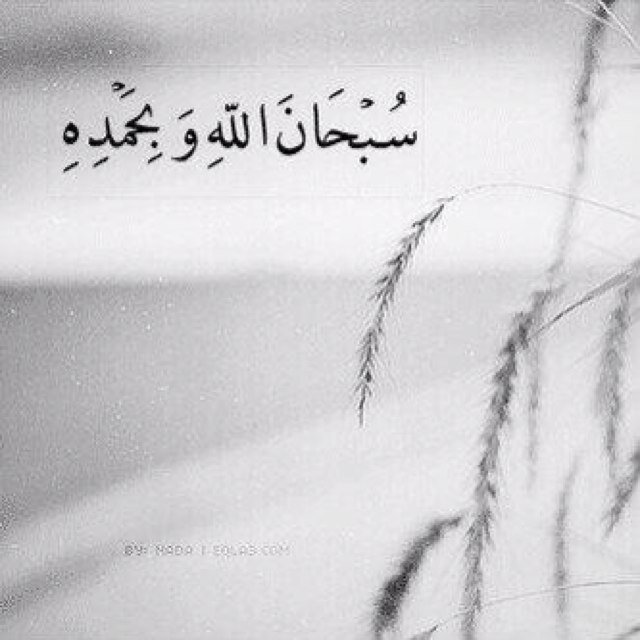 سُبْحَانَ اللّهِ وَ بِحَمْدِهِ
BY: NADA | EQLA3.COM